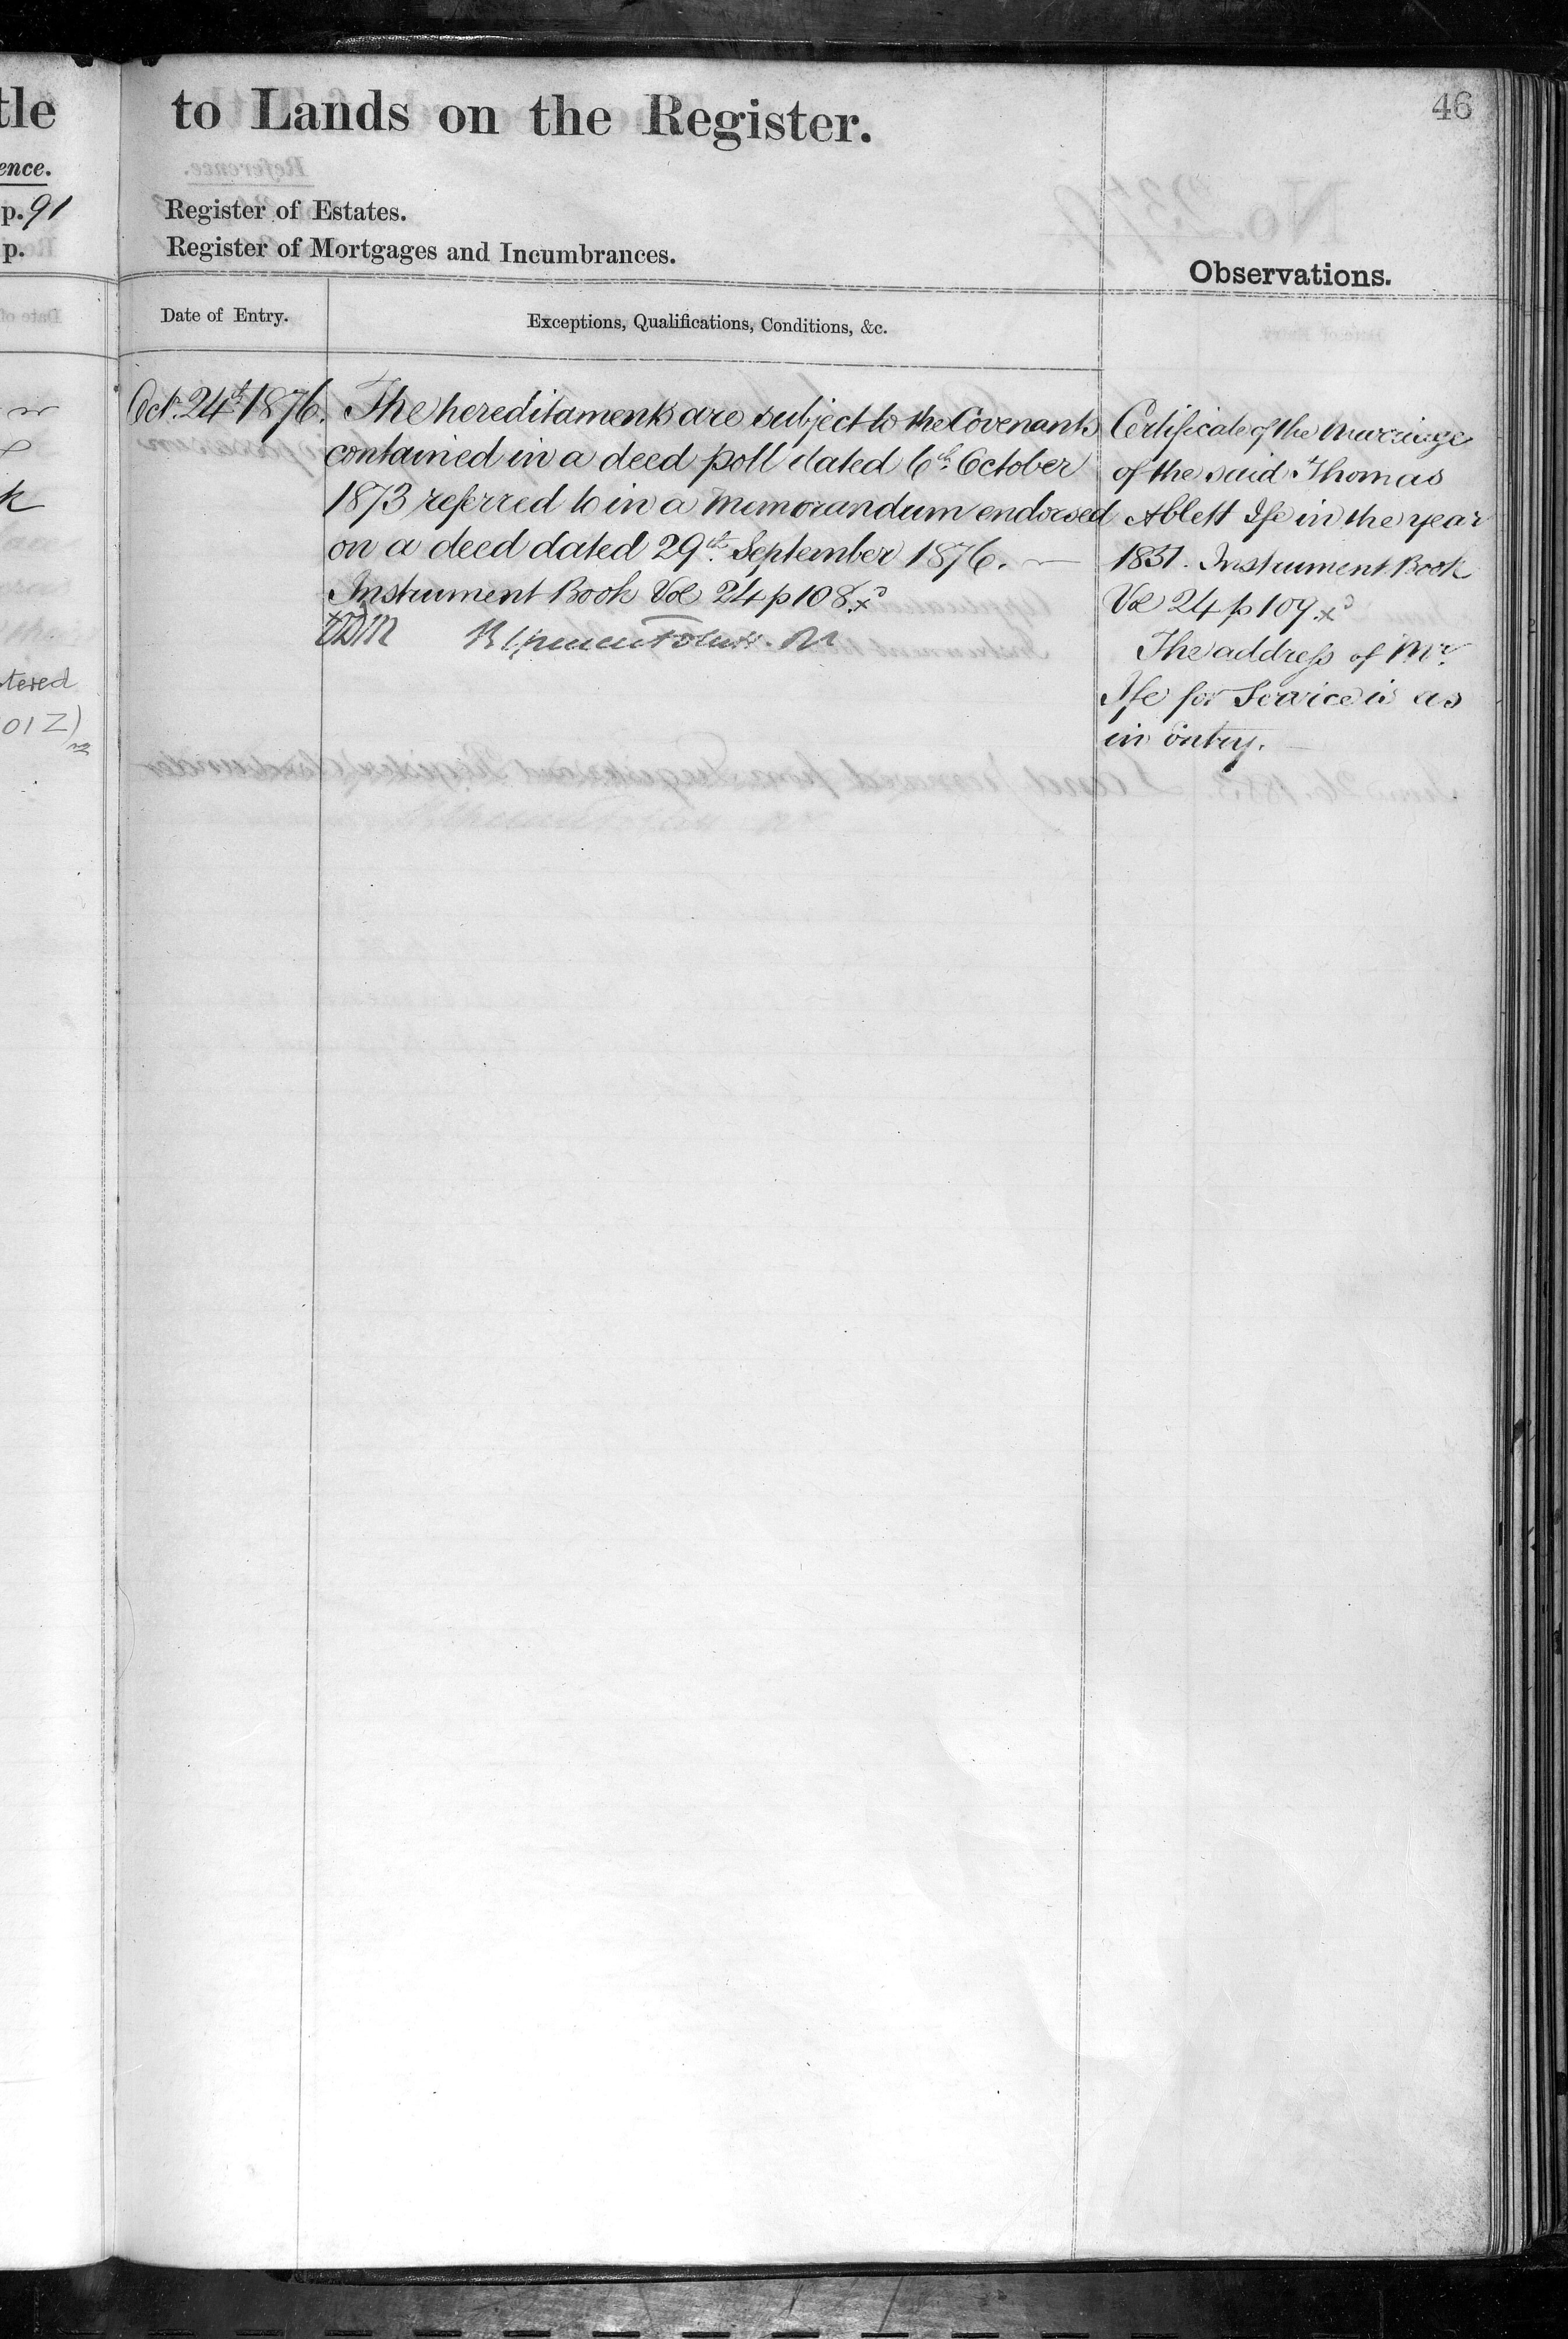 tle
ence.
p. 91
p.
tered
012)
to Lands on the Register.
46
Register of Estates.
Register of Mortgages and Incumbrances.
Observations.
Date of Entry.
Exceptions, Qualifications, Conditions, &c.
Oct. 24th 1876.
The hereditaments are subject to the Covenants
contained in a deed poll dated 6th October
1873 referred to in a Memorandum endorsed
on a deed dated 29th September 1876.
Instrument Book Vol 24 p 108.
Certificate of the Marriage
of the said Thomas
Ablett Ife in the year
1851. Instrument Book
Vol 24 p 109.
The address of Mr.
Ife for Service is as
in Entry.